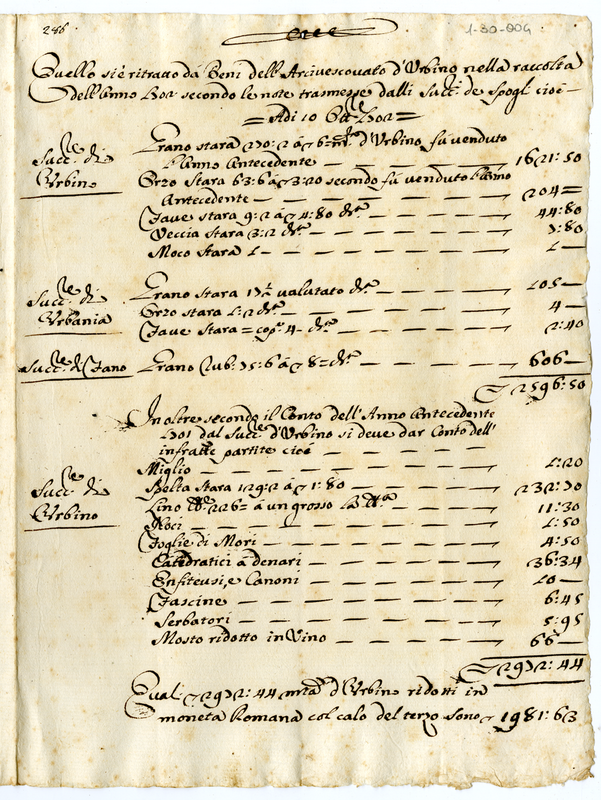 286
cccc
1-30-004
Quello si è ritratto dà Beni dell'Arcivescovato d'Urbino nella raccolta
dell'Anno 1702 secondo le note trasmesse dalli Succ.ri de Spogli cioè —
= Adi 10 Ott.re 1702 =
Succ.re di Urbino
Grano stara 270:2 à 6= m.ta d'Urbino fù venduto
l'Anno Antecedente — 1621:50
Orzo Stara 63:6 à 3:20 secondo fù venduto l'Anno
Antecedente — 204=
Fave stara 9:2 à 4:80 d.ta — 44:80
Veccia stara 3:2 d.ta — 7:80
Moco Stara 1 — 1 —
Succ.re di Urbania
Grano stara 17½ valutato d.ta — 105 —
Orzo stara 1:2 d.ta — 4 —
Fave Stara = cop.e 4 — d.ta — 2:40
Succ.re di Fano Grano Rub: 75:6 à 8= d.ta — 606 —
2596:50
Inoltre secondo il Conto dell'Anno Antecedente
1701 dal Succ.re d'Urbino si deve dar Conto dell'
infratte partite cioè —
Succ.re di Urbino
Miglio — 1:20
Spelta Stara 129:2 à 1:80 — 232:70
Lino lb.e 226= à un grosso la lb.a — 11:30
Noci — 1:50
Foglie di Mori — 4:50
Catedratici à denari — 36:34
Enfiteusi, e Canoni — 10 —
Fascine — 6:45
Serbatori — 5:95
Mosto ridotto in Vino — 66 —
2972:44
Quali 2972:44 m.ta d'Urbino ridotti in
moneta Romana col calo del terzo sono 1981:63